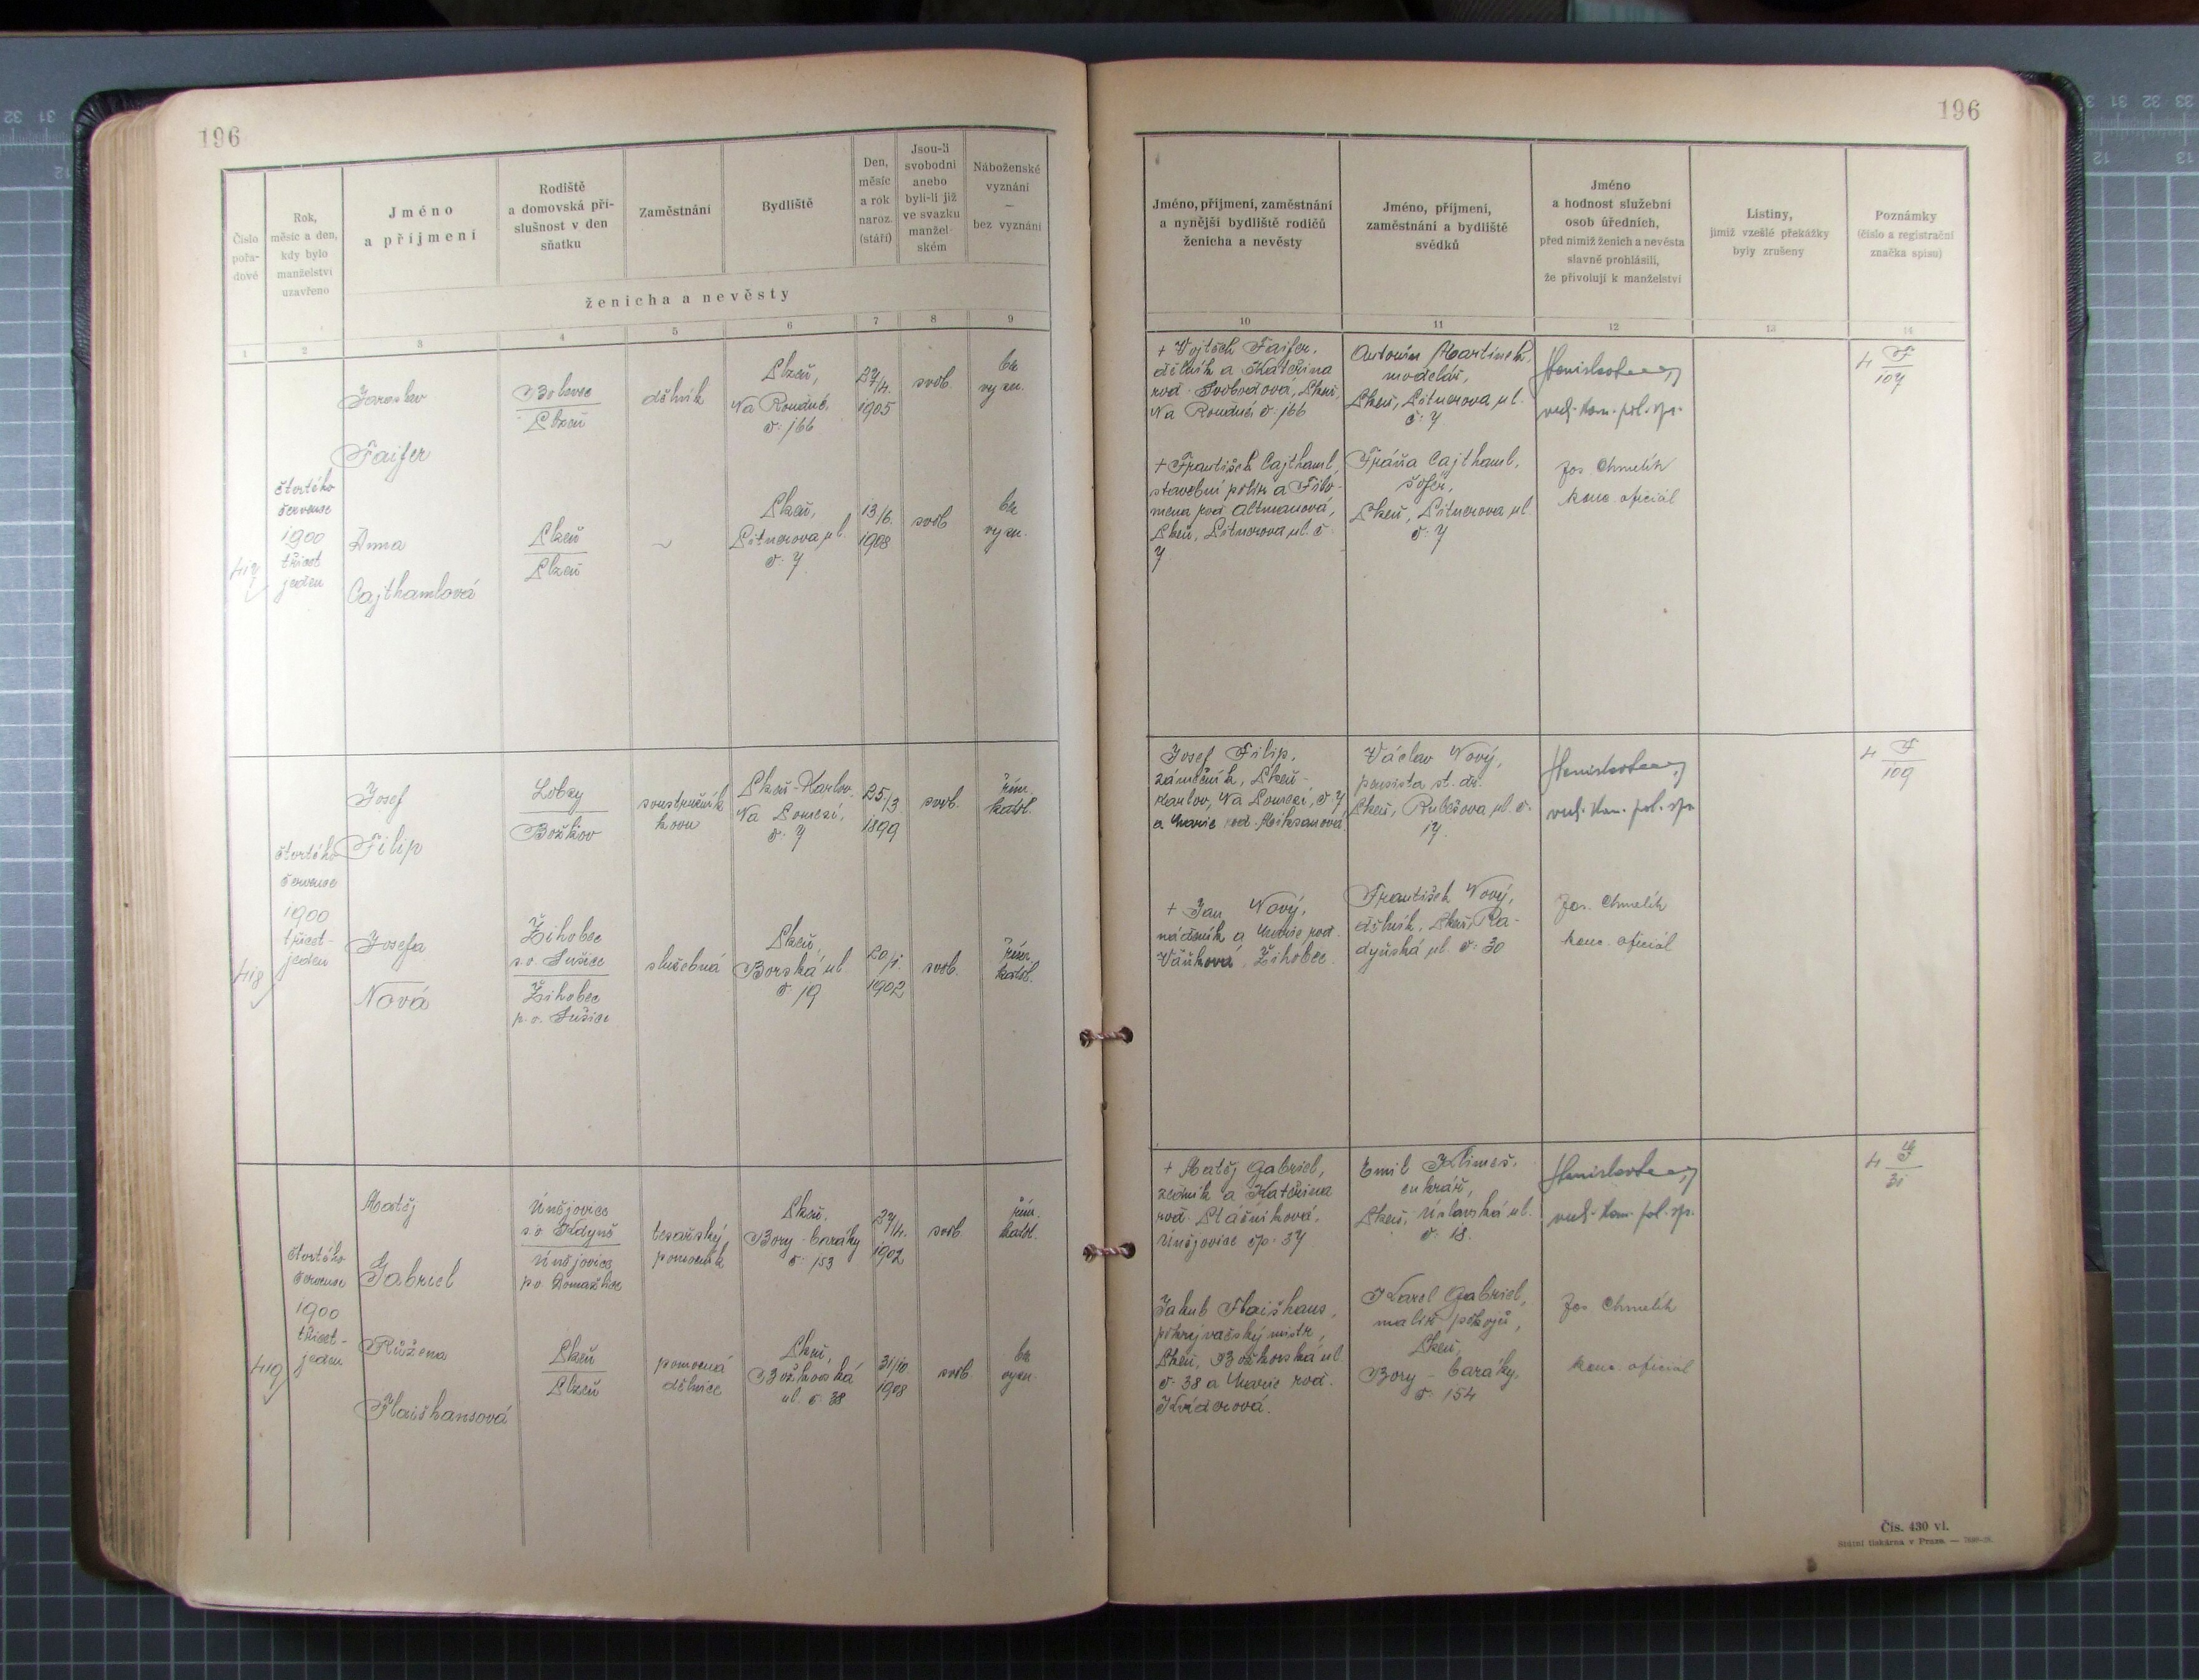 196
Číslo
pořa-
dové
Rok,
měsíc a den,
kdy bylo
manželství
uzavřeno
Jméno
a příjmení
Rodiště
a domovská pří-
slušnost v den
sňatku
Zaměstnání
Bydliště
Den,
měsíc
a rok
naroz.
(stáří)
Jsou-li
svobodni
anebo
byli-li již
ve svazku
manžel-
ském
Náboženské
vyznání
—
bez vyznání
ženicha a nevěsty
1 2 3 4 5 6 7 8 9
417
čtvrtého
července
1900
třicet
jeden
Jaroslav
Faifer
Bolevec
Plzeň
dělník
Plzeň,
Na Roudné,
č. 166
27/4.
1905
svob.
bez
vyzn.
Anna
Cajthamlová
Plzeň
Plzeň
~
Plzeň,
Pitnerova ul.
č. 7
13/6.
1908
svob
bez
vyzn.
418
čtvrtého
července
1900
třicet-
jeden
Josef
Filip
Lobzy
Božkov
soustružník
kovu
Plzeň-Karlov.
Na Pomezí,
č. 7
25/3.
1899
svob.
řím.
katol.
Josefa
Nová
Žihobec
s.o. Sušice
Žihobec
p.o. Sušice
služebná
Plzeň,
Borská ul
č. 19
20/1.
1902
svob.
řím.
katol.
419
čtvrtého
července
1900
třicet-
jeden
Matěj
Gabriel
Únějovice
s.o. Kdyně
Únějovice
p.o. Domažlice
tesařský
pomocník
Plzeň,
Bory - baráky
č. 153
27/4.
1902
svob.
řím.
katol.
Růžena
Flaišhansová
Plzeň
Plzeň
pomocná
dělnice
Plzeň,
Božkovská
ul. č. 38
31/10
1908
svob.
bez
vyzn.
196
Jméno, příjmení, zaměstnání
a nynější bydliště rodičů
ženicha a nevěsty
Jméno, příjmení,
zaměstnání a bydliště
svědků
Jméno
a hodnost služební
osob úředních,
před nimiž ženich a nevěsta
slavně prohlásili,
že přivolují k manželství
Listiny,
jimiž vzešlé překážky
byly zrušeny
Poznámky
(číslo a registrační
značka spisu)
10 11 12 13 14
+ Vojtěch Faifer,
dělník a Kateřina
rod. Svobodová, Plzeň,
Na Roudné č. 166
Antonín Martínek,
modelář,
Plzeň, Pitnerova ul.
č. 7
vrch. kom. pol. spr.
4 F
107
+ František Cajthaml,
stavební polír a Filo-
mena rod. Altmanová,
Plzeň, Pitnerova ul. č.
7
Fráňa Cajthaml,
šofér,
Plzeň, Pitnerova ul.
č. 7
Jos. Chmelík
kanc. oficiál
Josef Filip,
zámečník, Plzeň-
Karlov, Na Pomezí, č. 7
a Marie rod.
Václav Nový,
pensista st. dr.
Plzeň, Rubešova ul. č.
17.
vrch. kom. pol. spr.
4 F
109
+ Jan Nový,
nádeník a Marie rod.
Váňková, Žihobec.
František Nový,
dělník, Plzeň, Ra-
dyňská ul. č. 30
Jos. Chmelík
kanc. oficiál
+ Matěj Gabriel,
zedník a Kateřina
rod. Pláničková,
Únějovice čp. 37
Emil Klimeš,
cukrář,
Plzeň, Úslavská ul.
č. 18.
vrch. kom. pol. spr.
4 G
31
Jakub Flaišhans,
pokrývačský mistr,
Plzeň, Božkovská ul.
č. 38 a Marie rod.
Kviderová.
Karel Gabriel,
malíř pokojů,
Plzeň,
Bory - baráky,
č. 154
Jos. Chmelík
kanc. oficiál
Čís. 430 vl.
Státní tiskárna v Praze. —